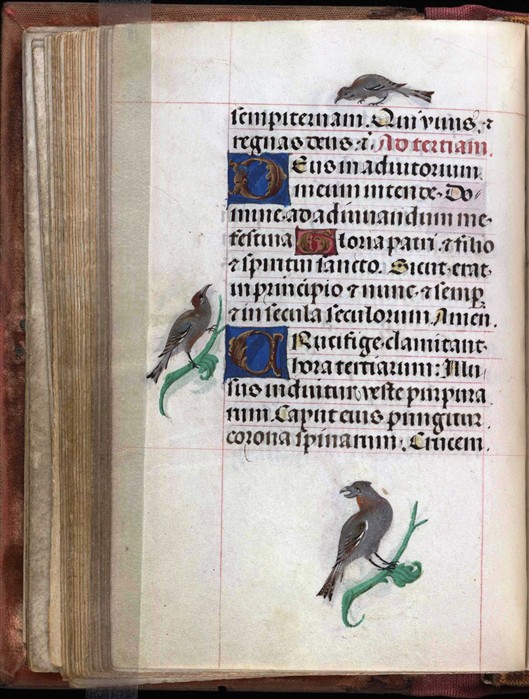 sempiternam. Qui vivis ⁊
regnas deus ⁊. Ad tertiam.
Deus in adiutorium
meum intende. Do/
mine ad adiuuandum me
festina Gloria patri. ⁊ filio
⁊ spiritui sancto. Sicut erat
in principio ⁊ nunc ⁊ semp̱
⁊ in secula seculorum Amen.
CRucifige clamitant
hora tertiarum: Illu
sus induitur veste purpura
rum Caput eius pungitur
corona spinarum. Crucem